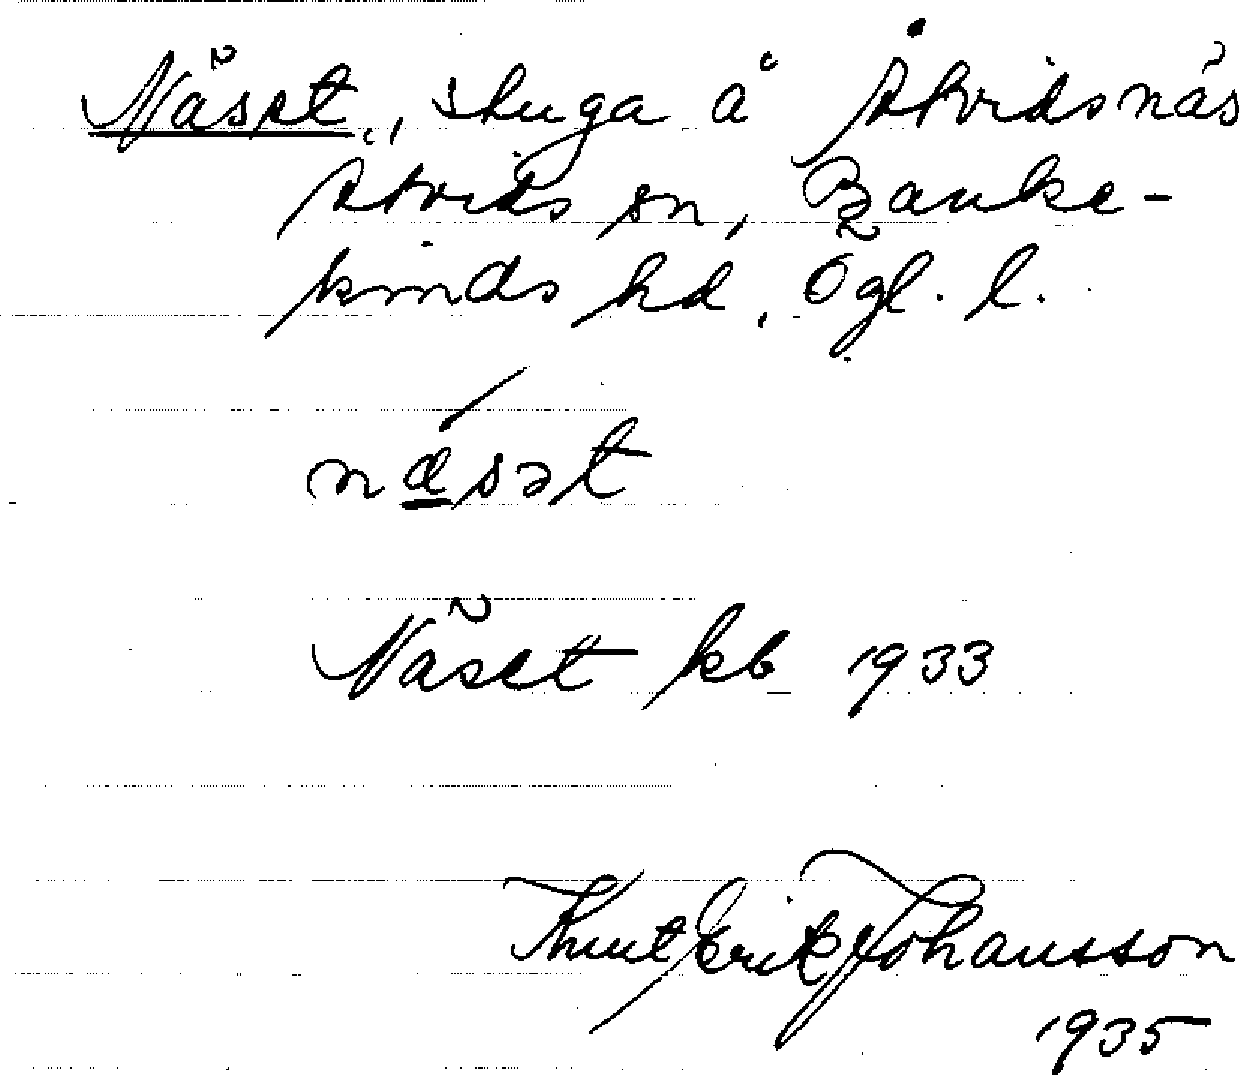 Näset, stuga å Åtvidsnäs
Åtvids sn, Banke-
kinds hd, Ögl. l.
næ´sət
Näset kb 1933
Knut Erik Johansson
1935